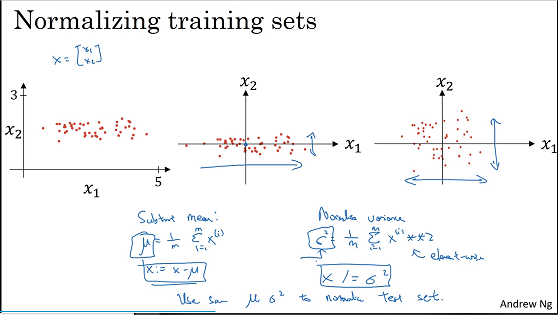 Normalizing training sets
x = [x₁ x₂]
3
x₂
x₁
5
x₂
x₁
x₂
x₁
Subtract mean:
μ = 1/m Σ_{i=1}^{m} x^{(i)}
x := x - μ
Normalize variance
σ² = 1/m Σ_{i=1}^{m} x^{(i)} ** 2
element-wise
x /= σ²
Use same μ σ² to normalize test set.
Andrew Ng